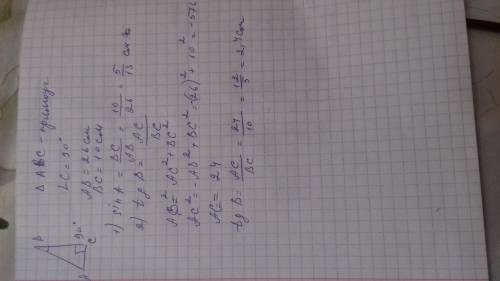 Δ ABC - прямоуг.
∠C = 90°
AB = 26 см
BC = 10 см
1) sin A = BC/AB = 10/26 = 5/13 см
2) tg B = AC/BC
AB² = AC² + BC²
AC² = -AB² + BC² = -(26)² + 10² = -576
AC = 24
tg B = AC/BC = 24/10 = 12/5 = 2,4 см
90°
C